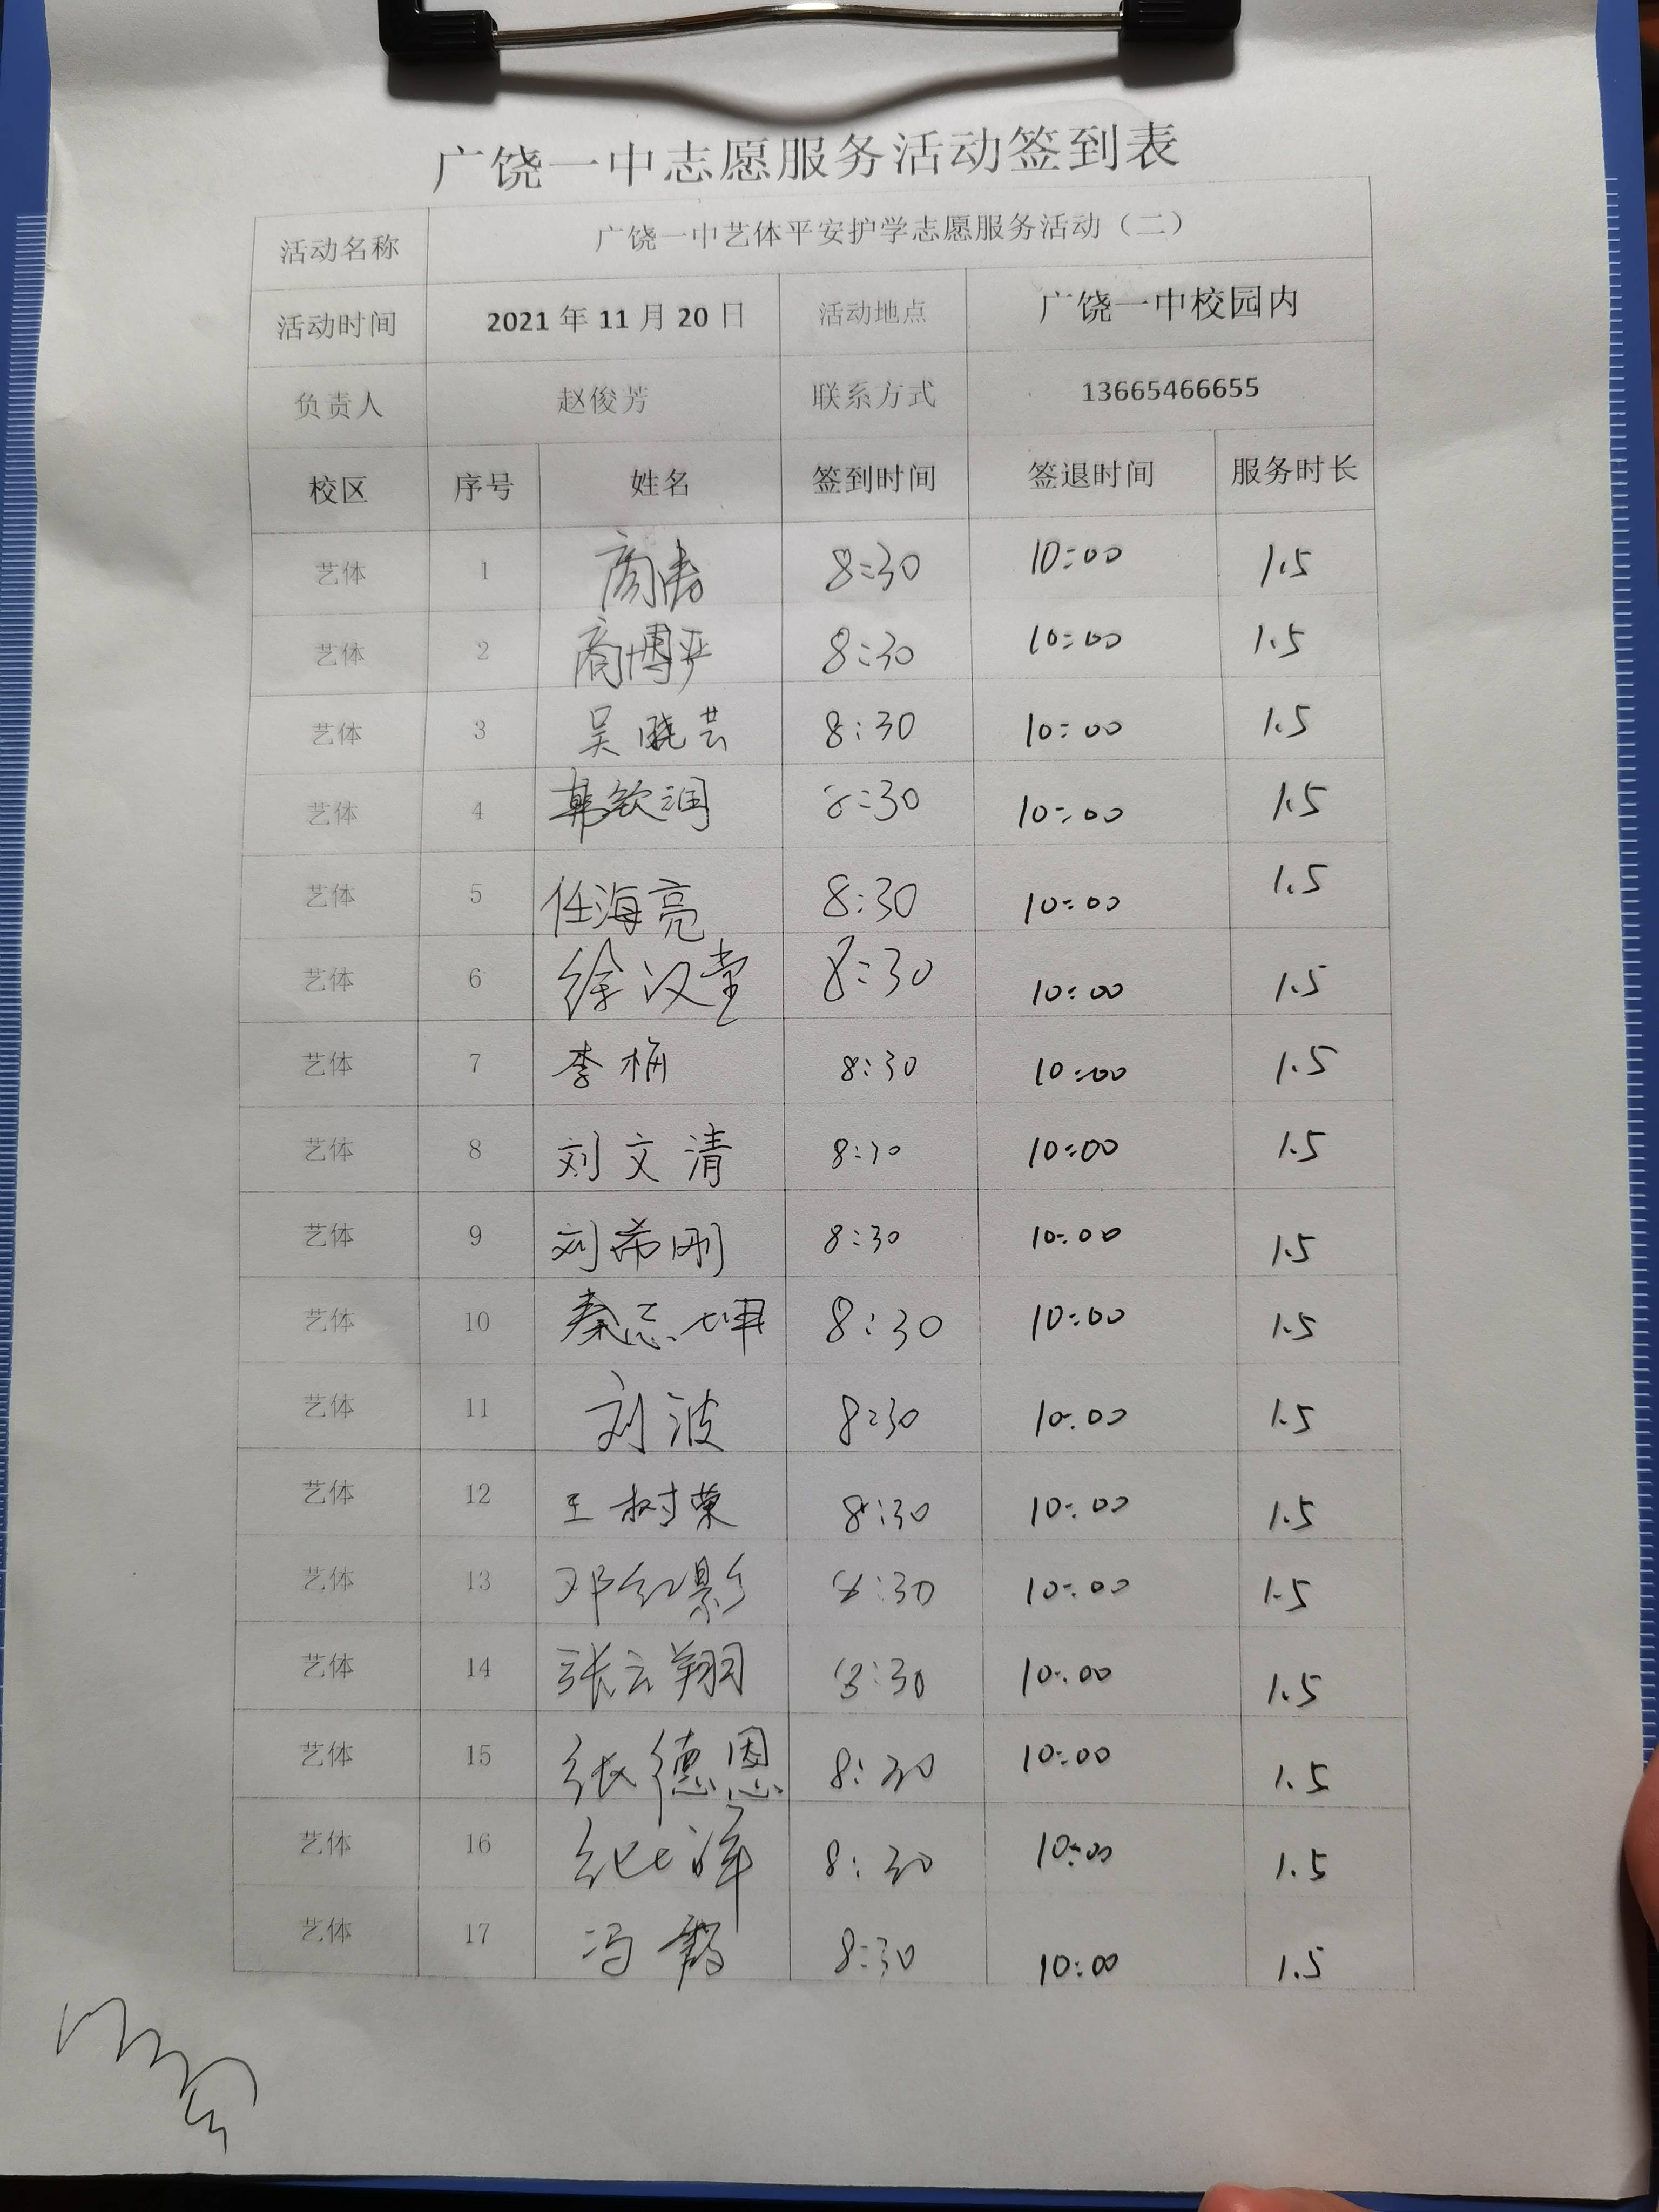 广饶一中志愿服务活动签到表
活动名称 广饶一中艺体平安护学志愿服务活动（二）
活动时间 2021年11月20日 活动地点 广饶一中校园内
负责人 赵俊芳 联系方式 13665466655
校区 序号 姓名 签到时间 签退时间 服务时长
艺体 1 商涛 8:30 10:00 1.5
艺体 2 商博严 8:30 10:00 1.5
艺体 3 吴晓芸 8:30 10:00 1.5
艺体 4 韩钦润 8:30 10:00 1.5
艺体 5 任海亮 8:30 10:00 1.5
艺体 6 徐汉堂 8:30 10:00 1.5
艺体 7 李梅 8:30 10:00 1.5
艺体 8 刘文清 8:30 10:00 1.5
艺体 9 刘希刚 8:30 10:00 1.5
艺体 10 秦志坤 8:30 10:00 1.5
艺体 11 刘波 8:30 10:00 1.5
艺体 12 王树荣 8:30 10:00 1.5
艺体 13 邓红影 8:30 10:00 1.5
艺体 14 张云翔 8:30 10:00 1.5
艺体 15 张德恩 8:30 10:00 1.5
艺体 16 纪洋 8:30 10:00 1.5
艺体 17 冯霞 8:30 10:00 1.5